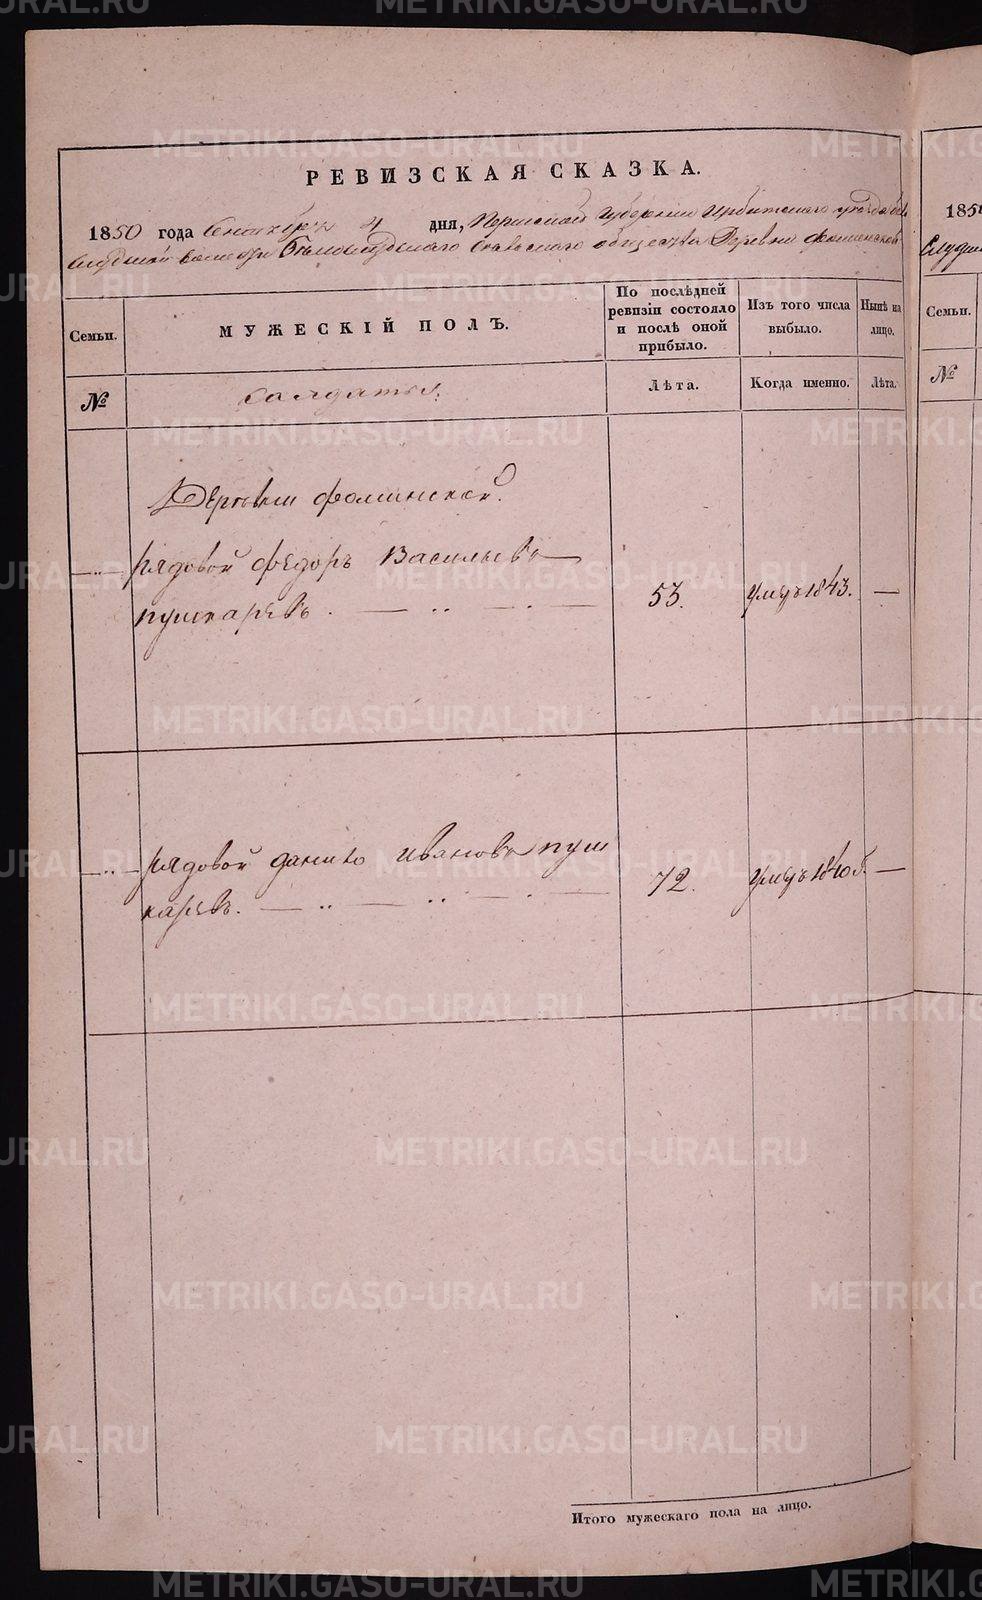 METRIKI.GASO-URAL.RU
РЕВИЗСКАЯ СКАЗКА.
1850 года Сентября 4 дня, Пермской Губернии Ирбитского уезда
волости сельского общества Деревни Фоминской
Семьи.
МУЖЕСКІЙ ПОЛЪ.
По послѣдней ревизіи состояло и послѣ оной прибыло.
Изъ того числа выбыло.
Нынѣ на лицо.
№
солдаты.
Лѣта.
Когда именно.
Лѣта.
Деревни фоминской.
рядовой федоръ Васильевъ
пушкаревъ. 53. умеръ 1843. —
рядовой данило ивановъ пуш
каревъ. 72. умеръ 1840 г. —
Итого мужескаго пола на лицо.
185
Семьи.
№